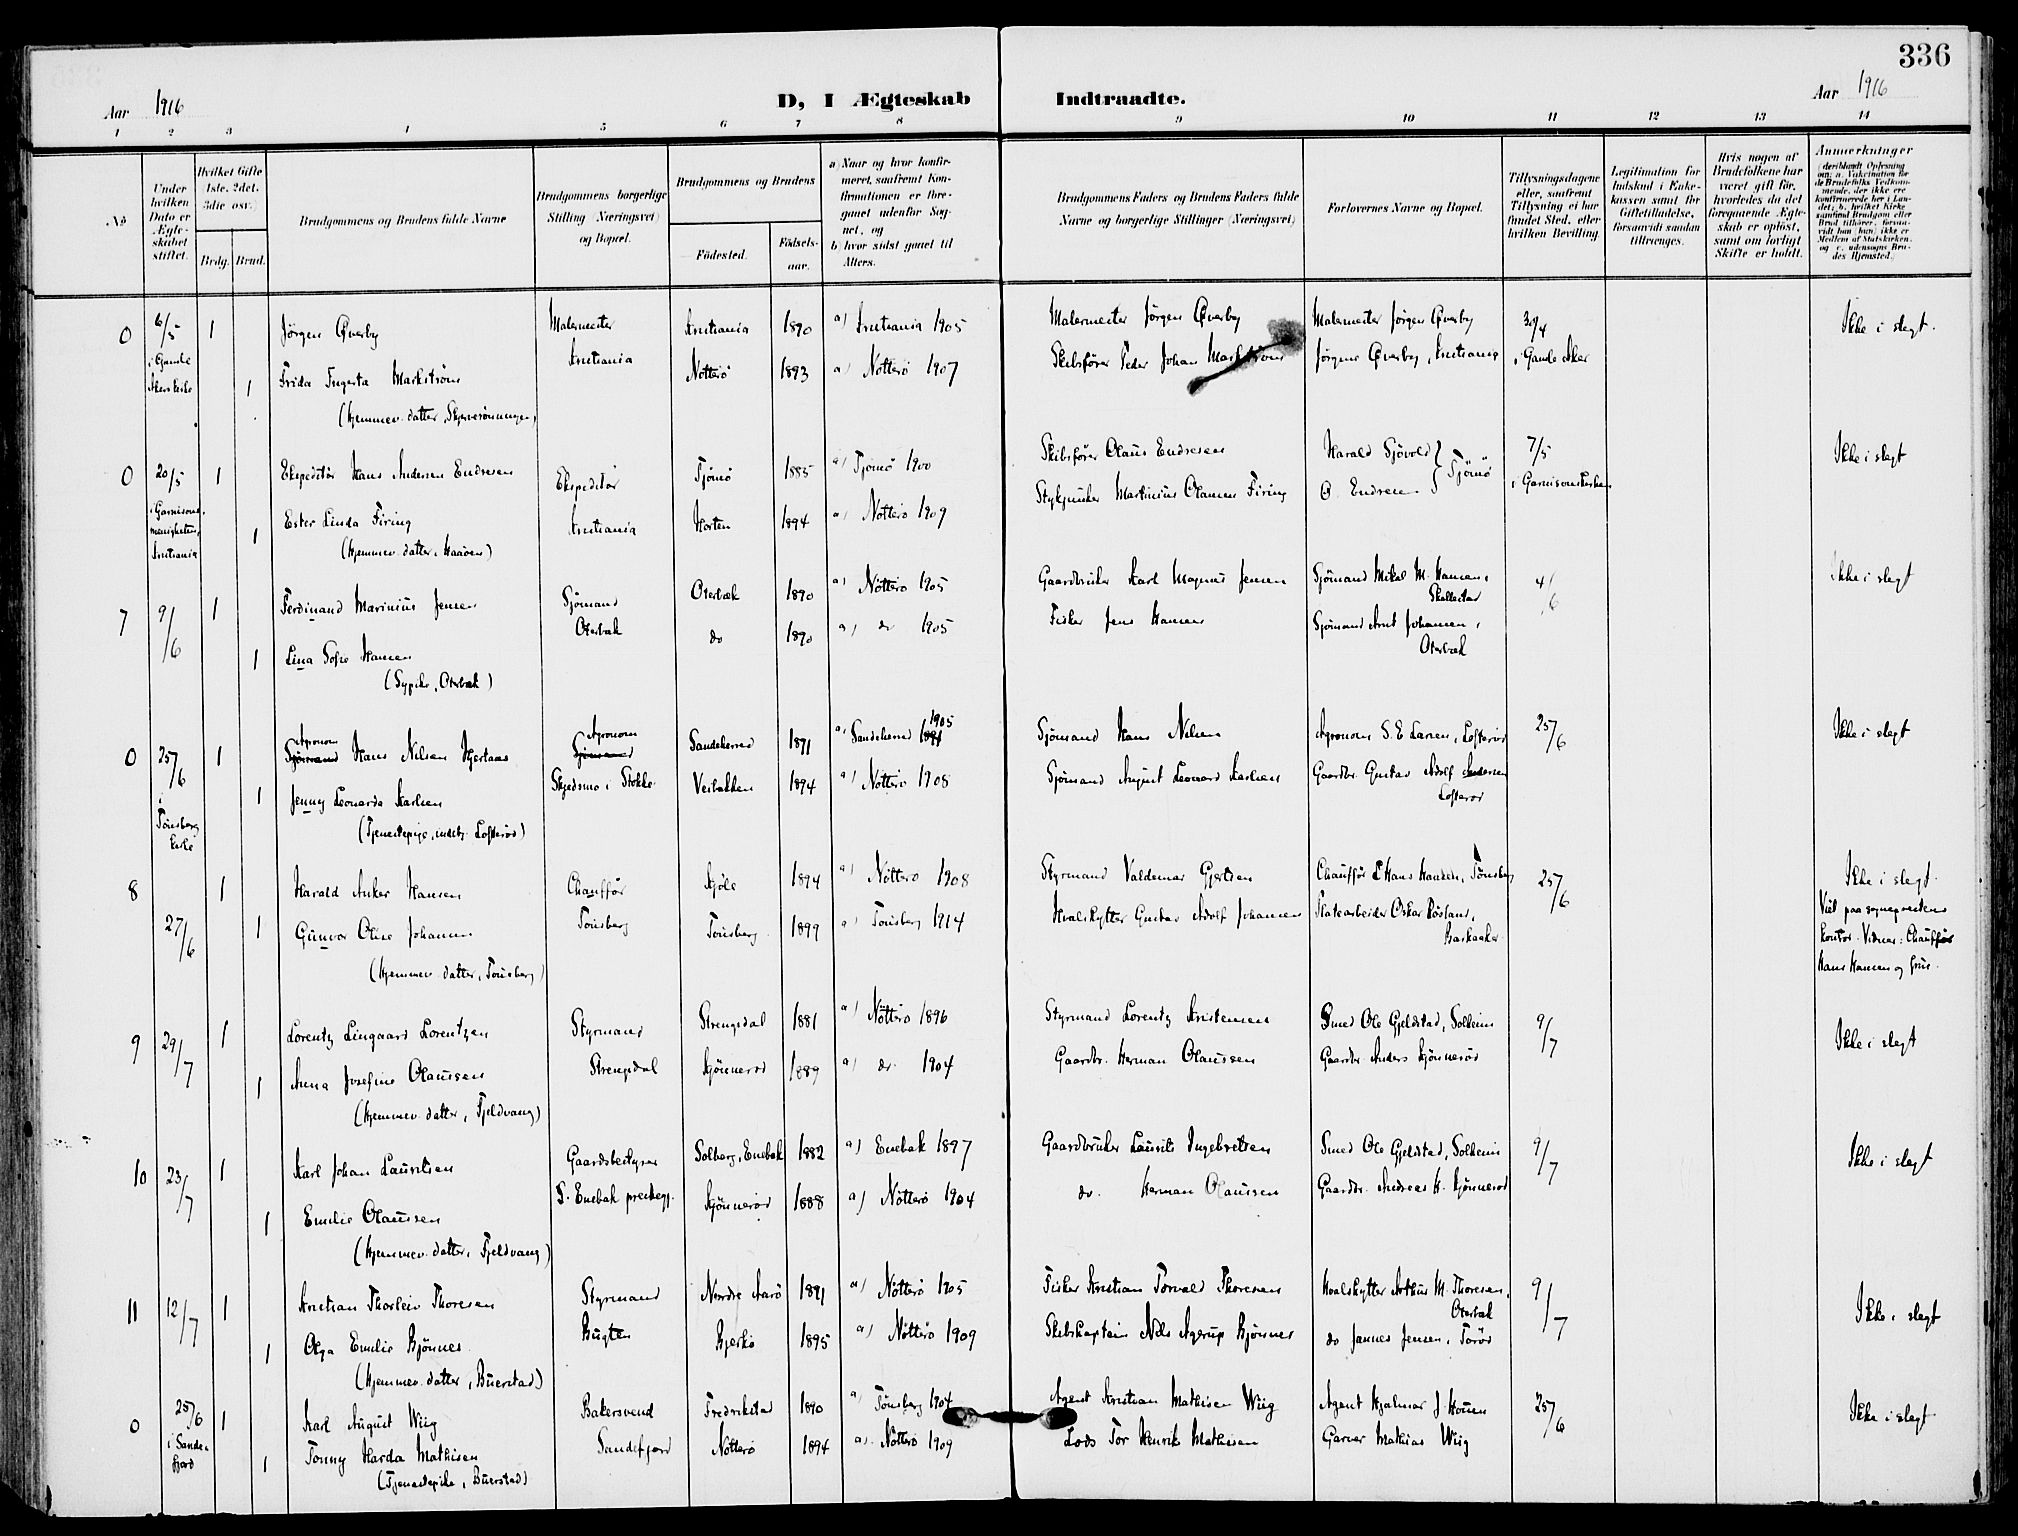 336
Aar 1916
D, I Ægteskab Indtraadte.
Aar 1916
1 2 3 4 5 6 7 8 9 10 11 12 13 14
No
Under hvilken Dato er Ægteskabet stiftet.
Hvilket Gifte 1ste. 2det. 3die osv.
Brdg. Brud.
Brudgommens og Brudens fulde Navne
Brudgommens borgerlige Stilling (Næringsvei) og Bopæl.
Brudgommens og Brudens
Födested.
Födsels-aar.
a) Naar og hvor konfirmeret, saafremt Konfirmationen er foregaaet udenfor Sognet, og
b) hvor sidst gaaet til Alters.
Brudgommens Faders og Brudens Faders fulde Navne og borgerlige Stillinger (Næringsvei)
Forlovernes Navne og Bopæl.
Tillysningsdagene eller, saafremt Tillysning ei har fundet Sted, efter hvilken Bevilling
Legitimation for Indskud i Enkekassen samt for Giftetilladelse, forsaavidt saadan tiltrænges.
Hvis nogen af Brudefolkene har været gift før, hvorledes da det foregaaende Ægteskab er opløst, samt om lovligt Skifte er holdt.
Anmerkninger
0 6/5 1 Jörgen Qverby Malermester Kristiania 1890 a) Kristiania 1905 Malermester Jörgen Qverby Malermester Jörgen Qverby 30/4 Ikke i slegt.
i Gamle Akers kirke 1 Frida Ingerta Markström Kristiania Nötterö 1893 a) Nötterö 1907 Skibsförer Peder Johan Markström Jörgine Qverby, Kristiania i Gamle Aker
(Hjemmev. datter, )
0 20/5 1 Ekspeditör Hans Andersen Endresen Ekspeditör Tjömö 1885 a) Tjömö 1900 Skibsförer Olaus Endresen Harald Sjövold } Tjömö 7/5 Ikke i slegt
i Garnisons menigheten, Kristiania 1 Ester Linda Firing Kristiania Horten 1894 a) Nötterö 1909 Stykjunker Martinius Olaneus Firing O. Endresen i Garnisonskirken
(Hjemmev. datter, Haaöen)
7 9/6 1 Ferdinand Marinius Jensen Sjömand Oterbæk 1890 a) Nötterö 1905 Gaardbruker Karl Magnus Jensen Sjömand Mikal M. Hansen, Skallestad 4/6 Ikke i slegt
1 Lina Sofie Hansen Oterbæk do 1890 a) do 1905 Fisker Jens Hansen Sjömand Arnt Johansen, Oterbæk
(Sypike, Oterbæk)
0 25/6 1 Sjömand Agronom Hans Nilsen Hjertaas Sjömand Agronom Sandeherred 1891 a) Sandeherred 1891 1905 Sjömand Hans Nilsen Agronom S. E. Larsen, Lofteröd 25/6 Ikke i slegt
i Tönsberg kirke 1 Jenny Leonarda Karlsen Skjedsmo i Stokke Vestbakken 1894 a) Nötterö 1908 Sjömand August Leonard Karlsen Gaardbr. Gustav Adolf Andersen Lofteröd
(Tjenestepige, midtb. Lofteröd)
8 27/6 1 Harald Anker Hansen Chauffför Kjöle 1894 a) Nötterö 1908 Styrmand Valdemar Gjertsen Chauffför Hans Hansen, Tönsberg 25/6 Ikke i slegt.
1 Gunvor Oline Johansen Tönsberg Tönsberg 1899 a) Tönsberg 1914 Hvalskytter Gustav Adolf Johansen Platearbeider Oskar Röslund, Barkaaker
(Hjemmev. datter, Tönsberg)
Viet paa sogneprestens kontor. Vidner: Chauffför Hans Hansen og frue.
9 29/7 1 Lorentz Lingaard Lorentzen Styrmand Strengsdal 1881 a) Nötterö 1896 Styrmand Lorentz Kristensen Smed Ole Gjeldstad, Solheim 9/7 Ikke i slegt
1 Anna Josefine Olaussen Strengsdal Kjönneröd 1889 a) do. 1904 Gaardbr. Herman Olaussen Gaardbr. Anders Kjönneröd
(Hjemmev. datter, Fjeldvang)
10 23/7 1 Karl Johan Lauritsen Gaardsbestyrer Solberg, Enebak 1882 a) Enebak 1897 Gaardbruker Laurits Ingebretsen Smed Ole Gjeldstad, Solheim 9/7 Ikke i slegt
1 Emilie Olaussen S. Enebak prestegj. Kjönneröd 1888 a) Nötterö 1904 do. Herman Olaussen Gaardbr. Andreas H. Kjönneröd
(Hjemmev. datter, Fjeldvang)
11 12/7 1 Kristian Thorleiv Thoresen Styrmand Nordre Aarö 1891 a) Nötterö 1905 Fisker Kristian Torvald Thoresen Hvalskytter Arthur M. Thoresen, Oterbæk 9/7 Ikke i slegt
1 Olga Emilie Bjönnes Bugten Bjerkö 1895 a) Nötterö 1909 Skibskaptein Nils Agerup Bjönnes do Jannes Jensen, Toröd
(Hjemmev. datter, Buerstad)
0 25/6 1 Karl August Wiig Bakersvend Fredrikstad 1890 a) Tönsberg 1904 Agent Kristian Mathisen Wiig Agent Hjalmar J. Houen 25/6 Ikke i slegt
i Sandefjord 1 Tonny Harda Mathisen Sandefjord Nötterö 1894 a). Nötterö 1909 Lods Tor Henrik Mathisen Garver Mathias Wiig
(Tjenestepike, Buerstad)